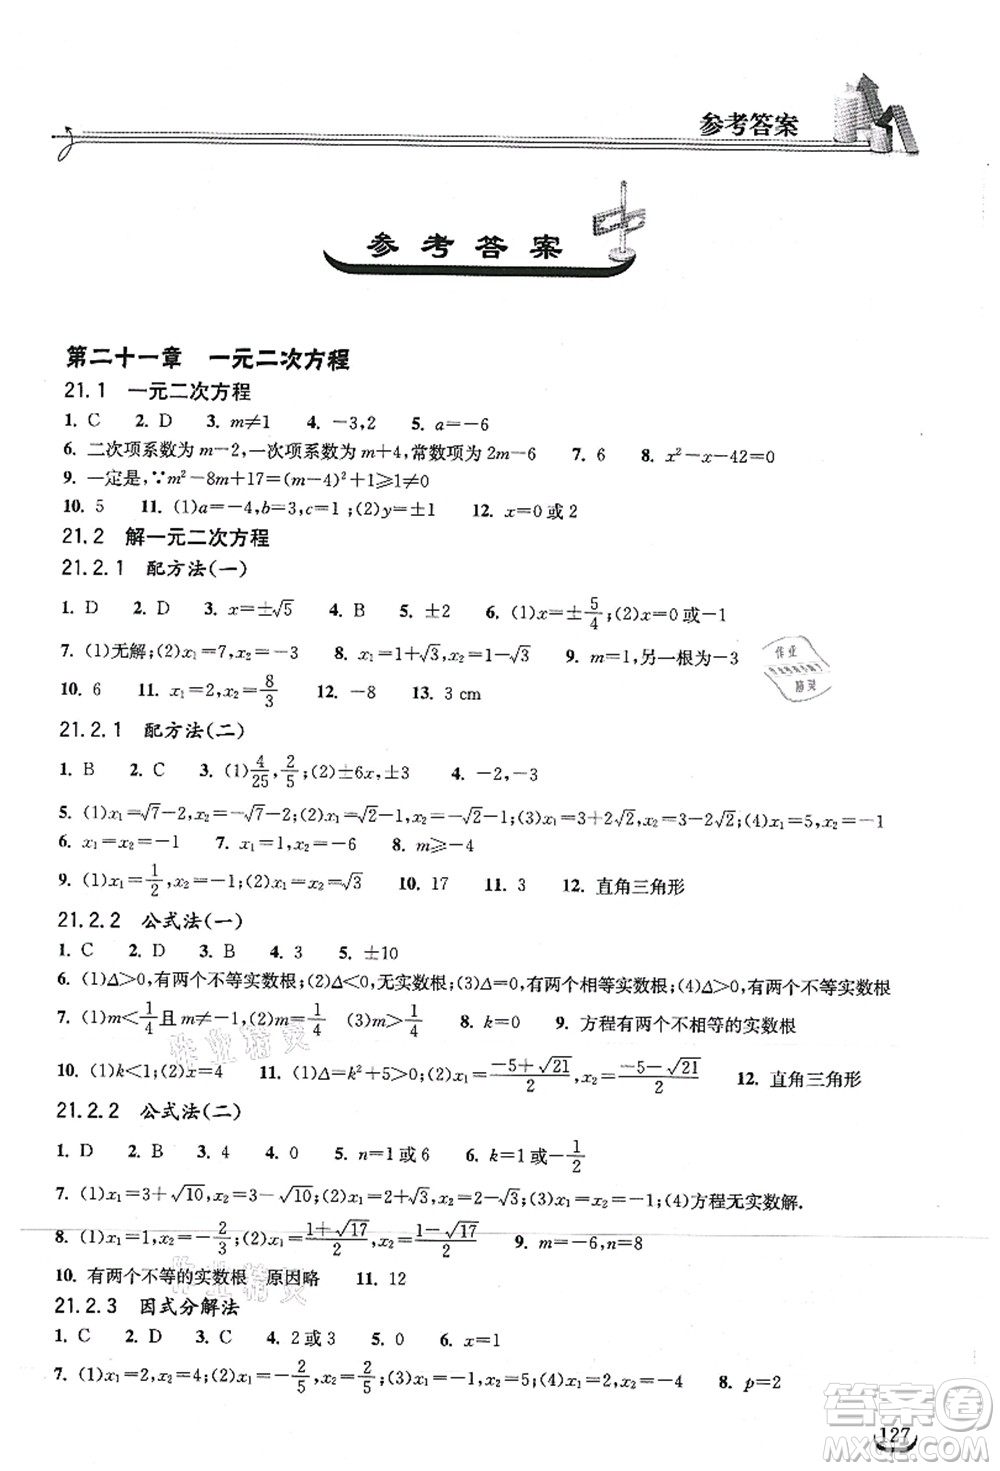 参考答案
参考答案
第二十一章 一元二次方程
21.1 一元二次方程
1. C 2. D 3. m≠1 4. －3,2 5. a=－6
6. 二次项系数为 m－2,一次项系数为 m＋4,常数项为 2m－6 7. 6 8. x²－x－42=0
9. 一定是,∵m²－8m＋17=(m－4)²＋1⩾1≠0
10. 5 11. (1)a=－4,b=3,c=1;(2)y=±1 12. x=0 或 2
21.2 解一元二次方程
21.2.1 配方法(一)
1. D 2. D 3. x=±√5 4. B 5. ±2 6. (1)x=±5/4;(2)x=0 或－1
7. (1)无解;(2)x₁=7,x₂=－3 8. x₁=1＋√3,x₂=1－√3 9. m=1,另一根为－3
10. 6 11. x₁=2,x₂=8/3 12. －8 13. 3 cm
21.2.1 配方法(二)
1. B 2. C 3. (1)4/25,2/5;(2)±6x,±3 4. －2,－3
5. (1)x₁=√7－2,x₂=－√7－2;(2)x₁=√2－1,x₂=－√2－1;(3)x₁=3＋2√2,x₂=3－2√2;(4)x₁=5,x₂=－1
6. x₁=x₂=－1 7. x₁=1,x₂=－6 8. m⩾－4
9. (1)x₁=1/2,x₂=－1;(2)x₁=x₂=√3 10. 17 11. 3 12. 直角三角形
21.2.2 公式法(一)
1. C 2. D 3. B 4. 3 5. ±10
6. (1)Δ>0,有两个不等实数根;(2)Δ<0,无实数根;(3)Δ=0,有两个相等实数根;(4)Δ>0,有两个不等实数根
7. (1)m<1/4且 m≠－1,(2)m=1/4 (3)m>1/4 8. k=0 9. 方程有两个不相等的实数根
10. (1)k<1;(2)x=4 11. (1)Δ=k²＋5>0;(2)x₁=(－5＋√21)/2,x₂=(－5－√21)/2 12. 直角三角形
21.2.2 公式法(二)
1. D 2. B 3. 4 4. 0 5. n=1 或 6 6. k=1 或－1/2
7. (1)x₁=3＋√10,x₂=3－√10;(2)x₁=2＋√3,x₂=2－√3;(3)x₁=5,x₂=－1;(4)方程无实数解.
8. (1)x₁=1,x₂=－2/3;(2)x₁=(1＋√17)/2,x₂=(1－√17)/2 9. m=－6,n=8
10. 有两个不等的实数根 原因略 11. 12
21.2.3 因式分解法
1. C 2. D 3. C 4. 2 或 3 5. 0 6. x=1
7. (1)x₁=2,x₂=4;(2)x₁=－2/5,x₂=2/5;(3)x₁=－1,x₂=5;(4)x₁=2,x₂=－4 8. p=2
127
作业
精灵
作业精灵
作业精灵
答案卷
MXQE.COM